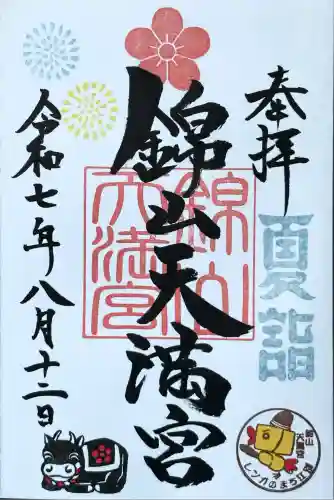 奉拝
夏詣
錦山天満宮
錦山
天満宮
令和七年八月十二日
錦山
天満宮
レンガのまち江別